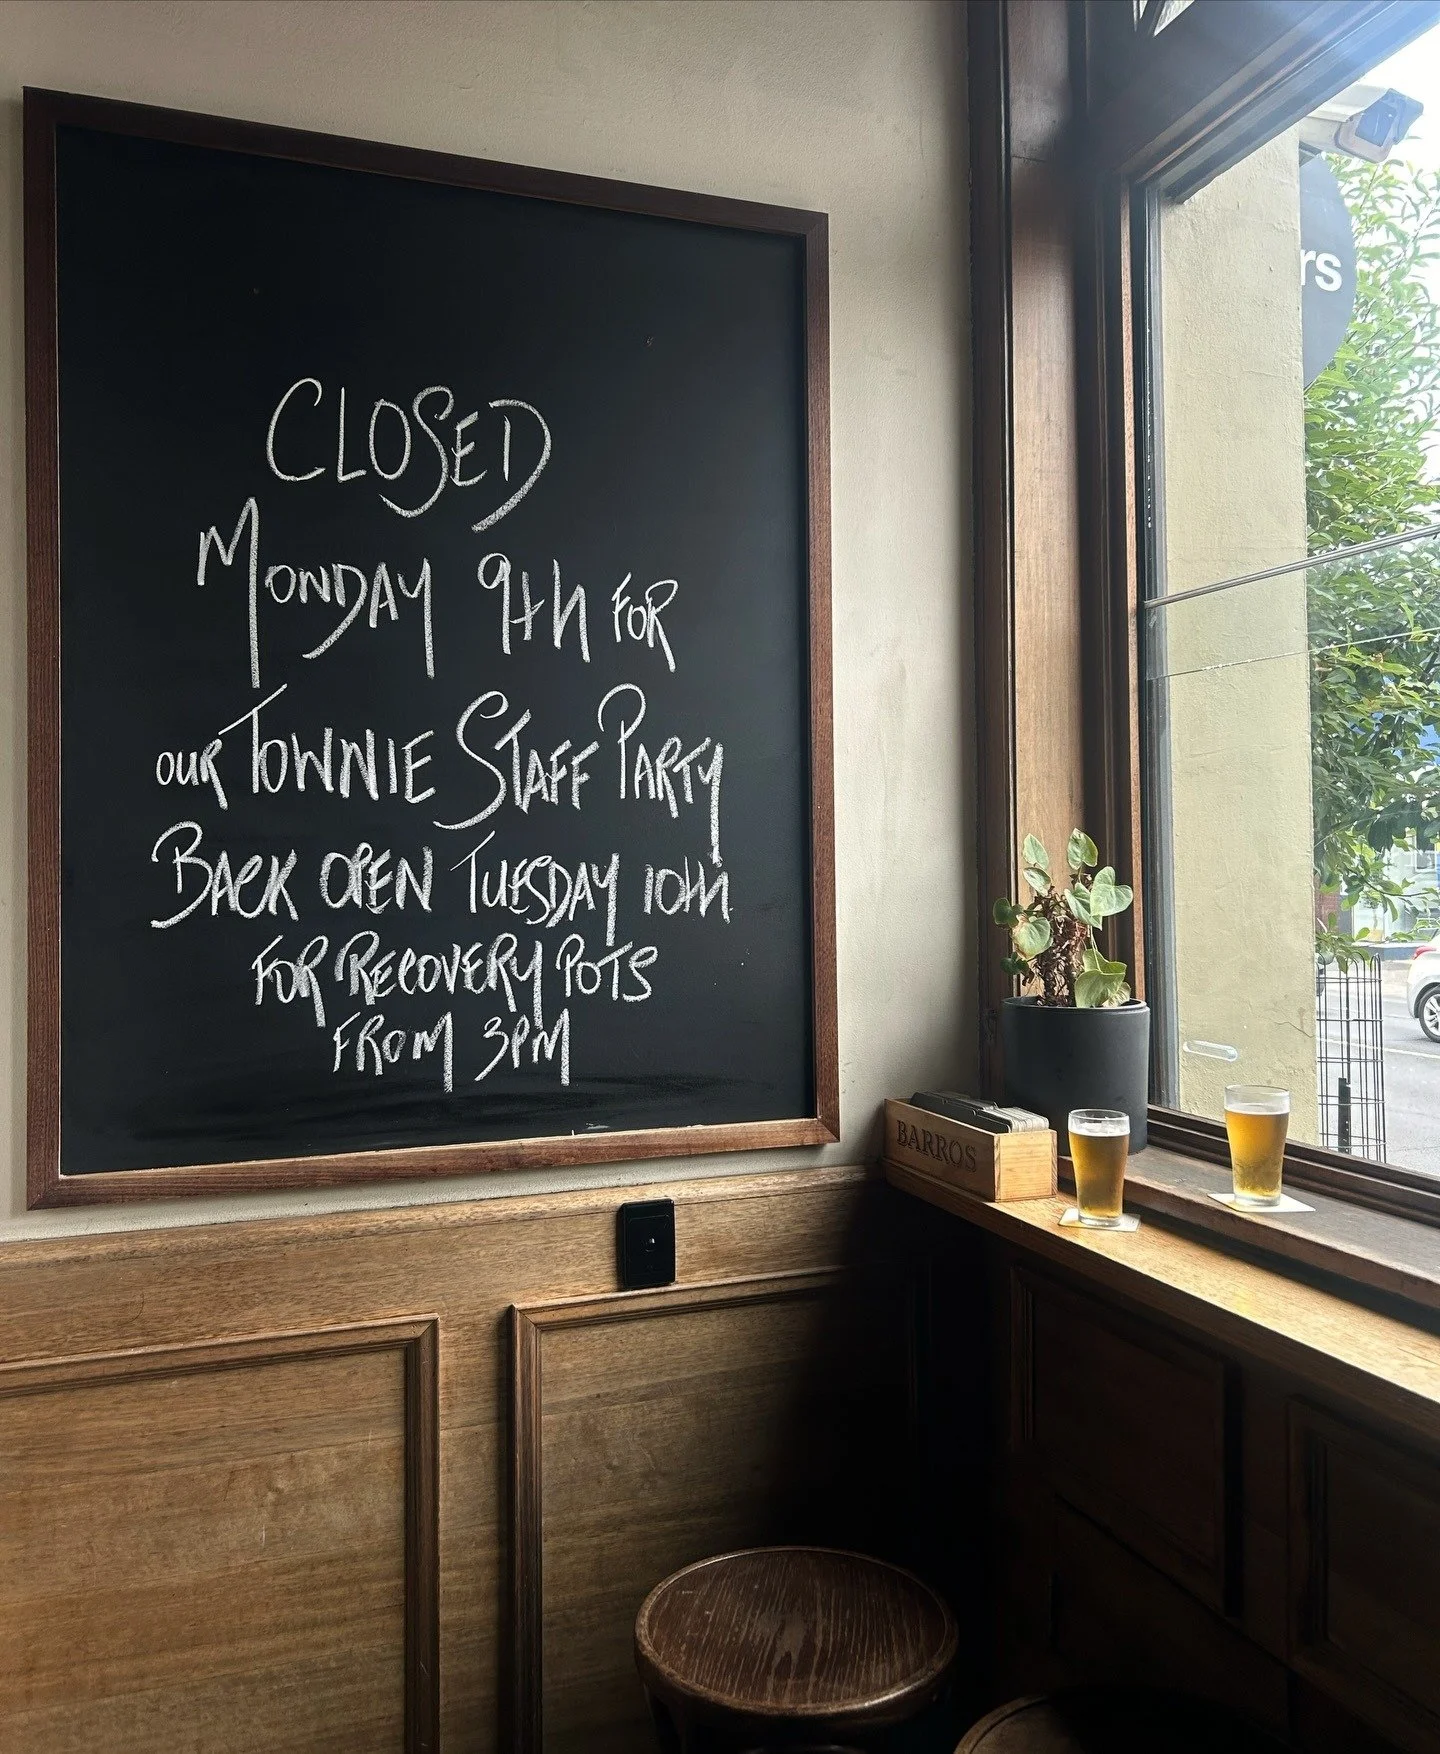 CLOSED
MONDAY 9th FOR
OUR TOWNIE STAFF PARTY
BACK OPEN TUESDAY 10th
FOR RECOVERY POTS
FROM 3PM
rs
BARROS